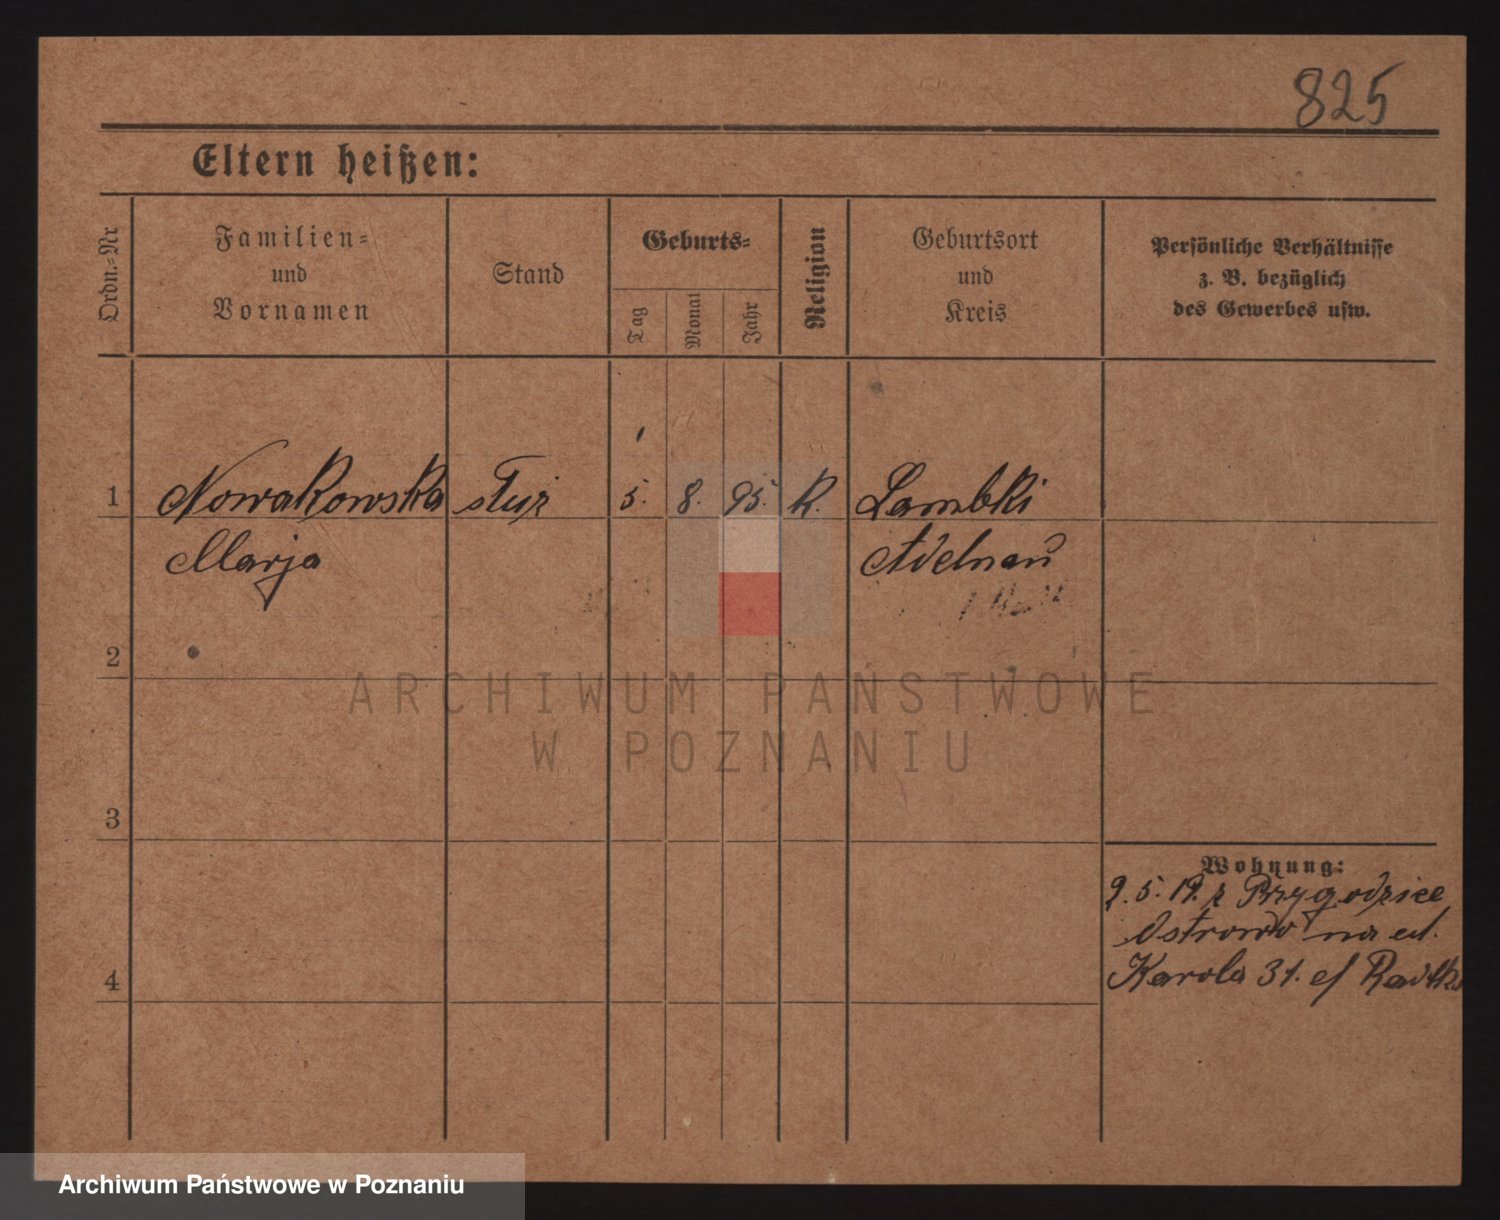 825
Eltern heißen:
Ordn.-Nr
Familien-
und
Vornamen
Stand
Geburts-
Tag
Monat
Jahr
Religion
Geburtsort
und
Kreis
Persönliche Verhältnisse
z. B. bezüglich
des Gewerbes usw.
1 Nowakowska służ 5. 8. 95. K. Lambki
Marja Adelnau
2
ARCHIWUM PAŃSTWOWE
W POZNANIU
3
Wohnung:
9. 5. 19. z Przygodzice
Ostrowo na ul.
4
Karola 31.
Archiwum Państwowe w Poznaniu